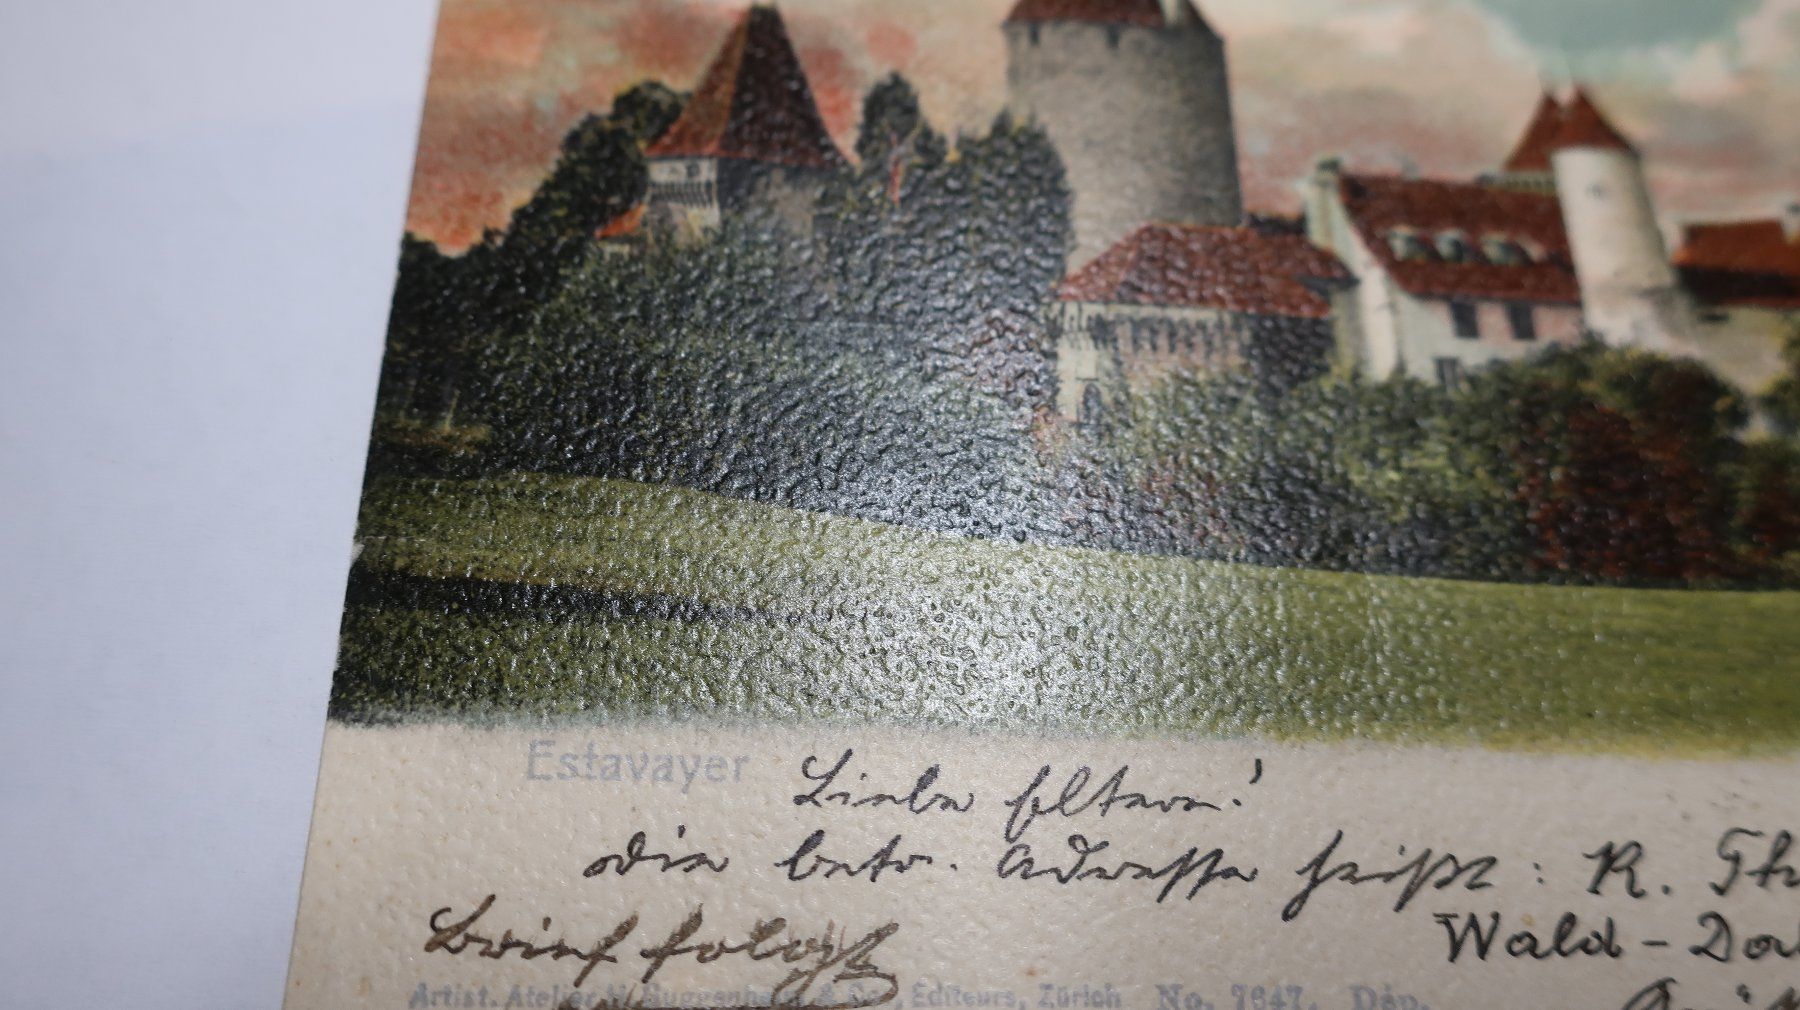 Estavayer
Liebe Eltern!
Die betr. Adresse heißt: R. Th
Wald-Do
Brief folgt
Artist. Atelier H. Guggenheim & Co., Editeurs, Zürich No. 7647. Dép.